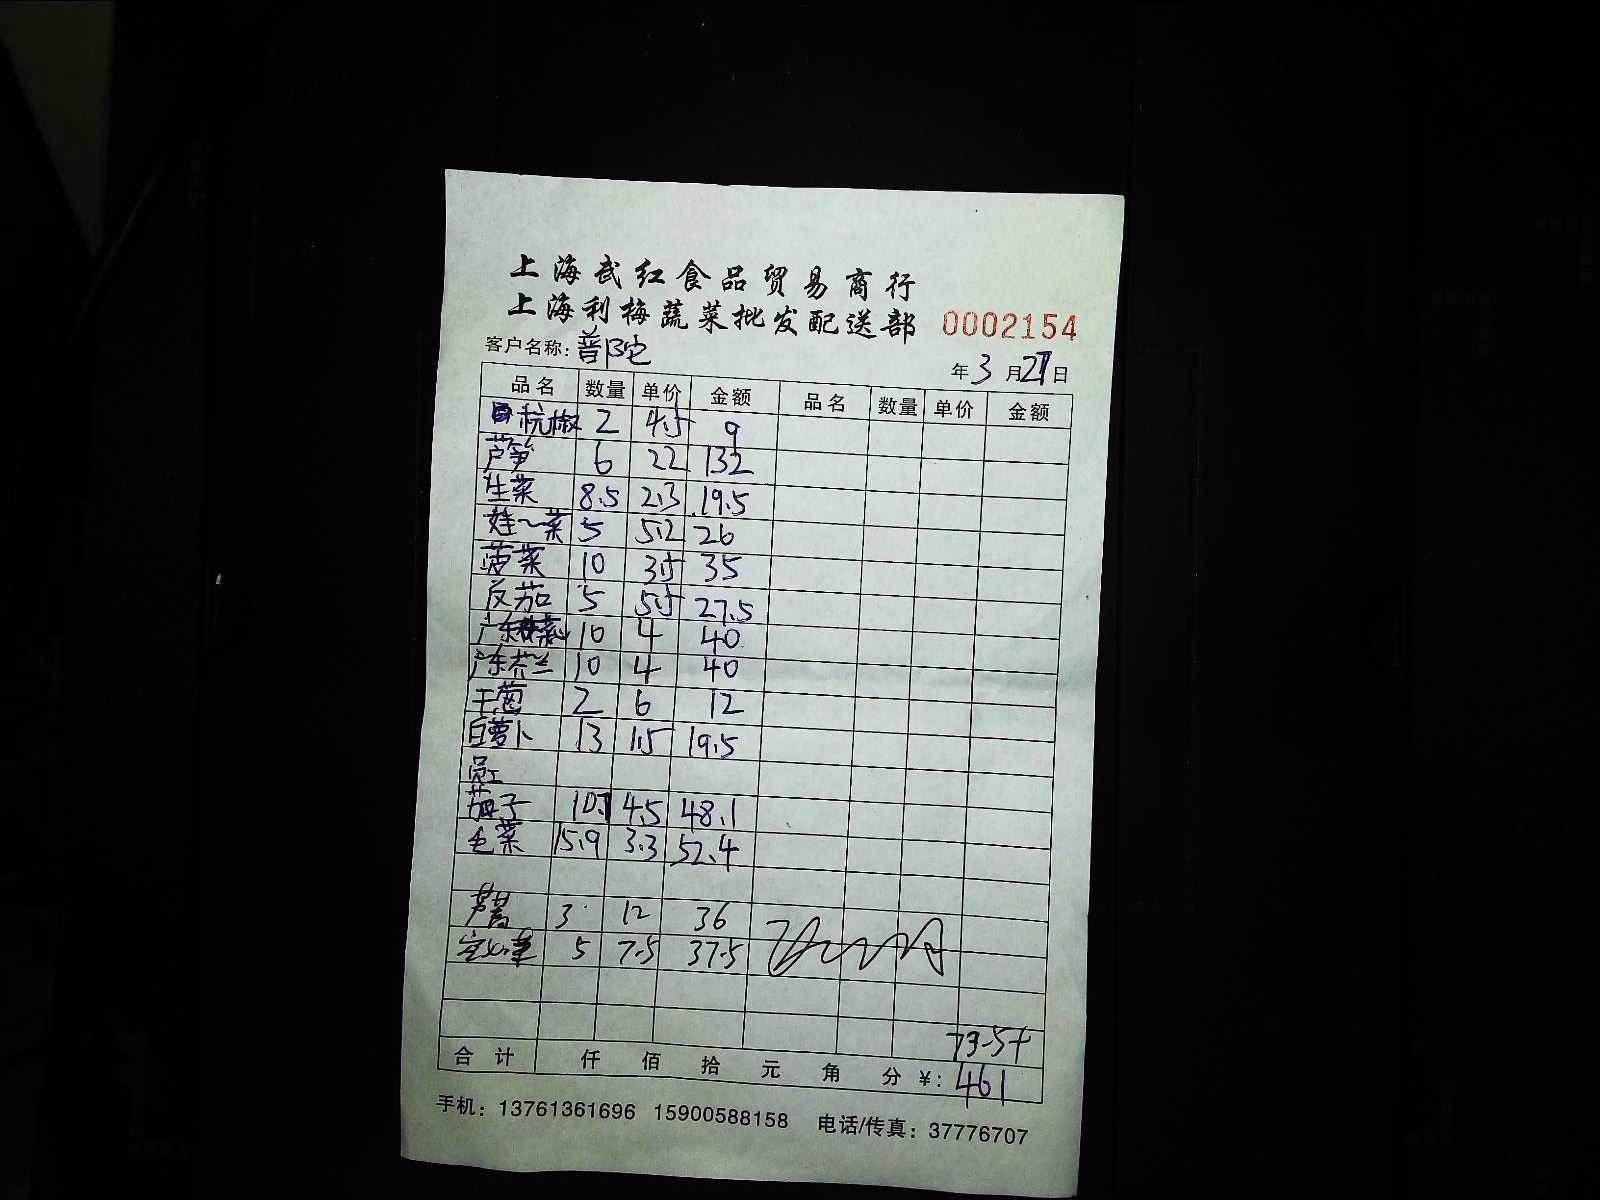 上海武红食品贸易商行
上海利梅蔬菜批发配送部 0002154
客户名称: 普陀 年3月21日
品名 数量 单价 金额 品名 数量 单价 金额
杭椒 2 4.5 9
芦笋 6 22 132
生菜 8.5 2.3 19.5
娃~菜 5 5.2 26
菠菜 10 3.5 35
反茄 5 5.5 27.5
广东菜心 10 4 40
广东芥兰 10 4 40
干葱 2 6 12
白萝卜 13 1.5 19.5
员工
茄子 10.7 4.5 48.1
毛菜 15.9 3.3 52.4
芦蒿 3 12 36
空心菜 5 7.5 37.5
73.5+
合计 仟 佰 拾 元 角 分 ¥: 461
手机: 13761361696 15900588158 电话/传真: 37776707